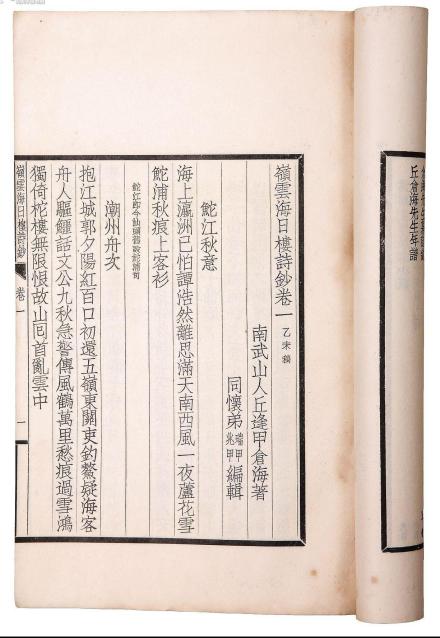 嶺雲海日樓詩鈔卷一 乙未稿
南武山人丘逢甲倉海著
同懷弟 瑞甲 兆甲 編輯
鮀江秋意
海上瀛洲已怕譚浩然離思滿天南西風一夜蘆花雪
鮀浦秋痕上客衫
潮州舟次
抱江城郭夕陽紅百口初還五嶺東關吏釣鰲疑海客
舟人驅鱷話文公九秋急警傳風鶴萬里愁痕過雪鴻
獨倚柁樓無限恨故山回首亂雲中
嶺雲海日樓詩鈔 卷一 一
丘倉海先生年譜